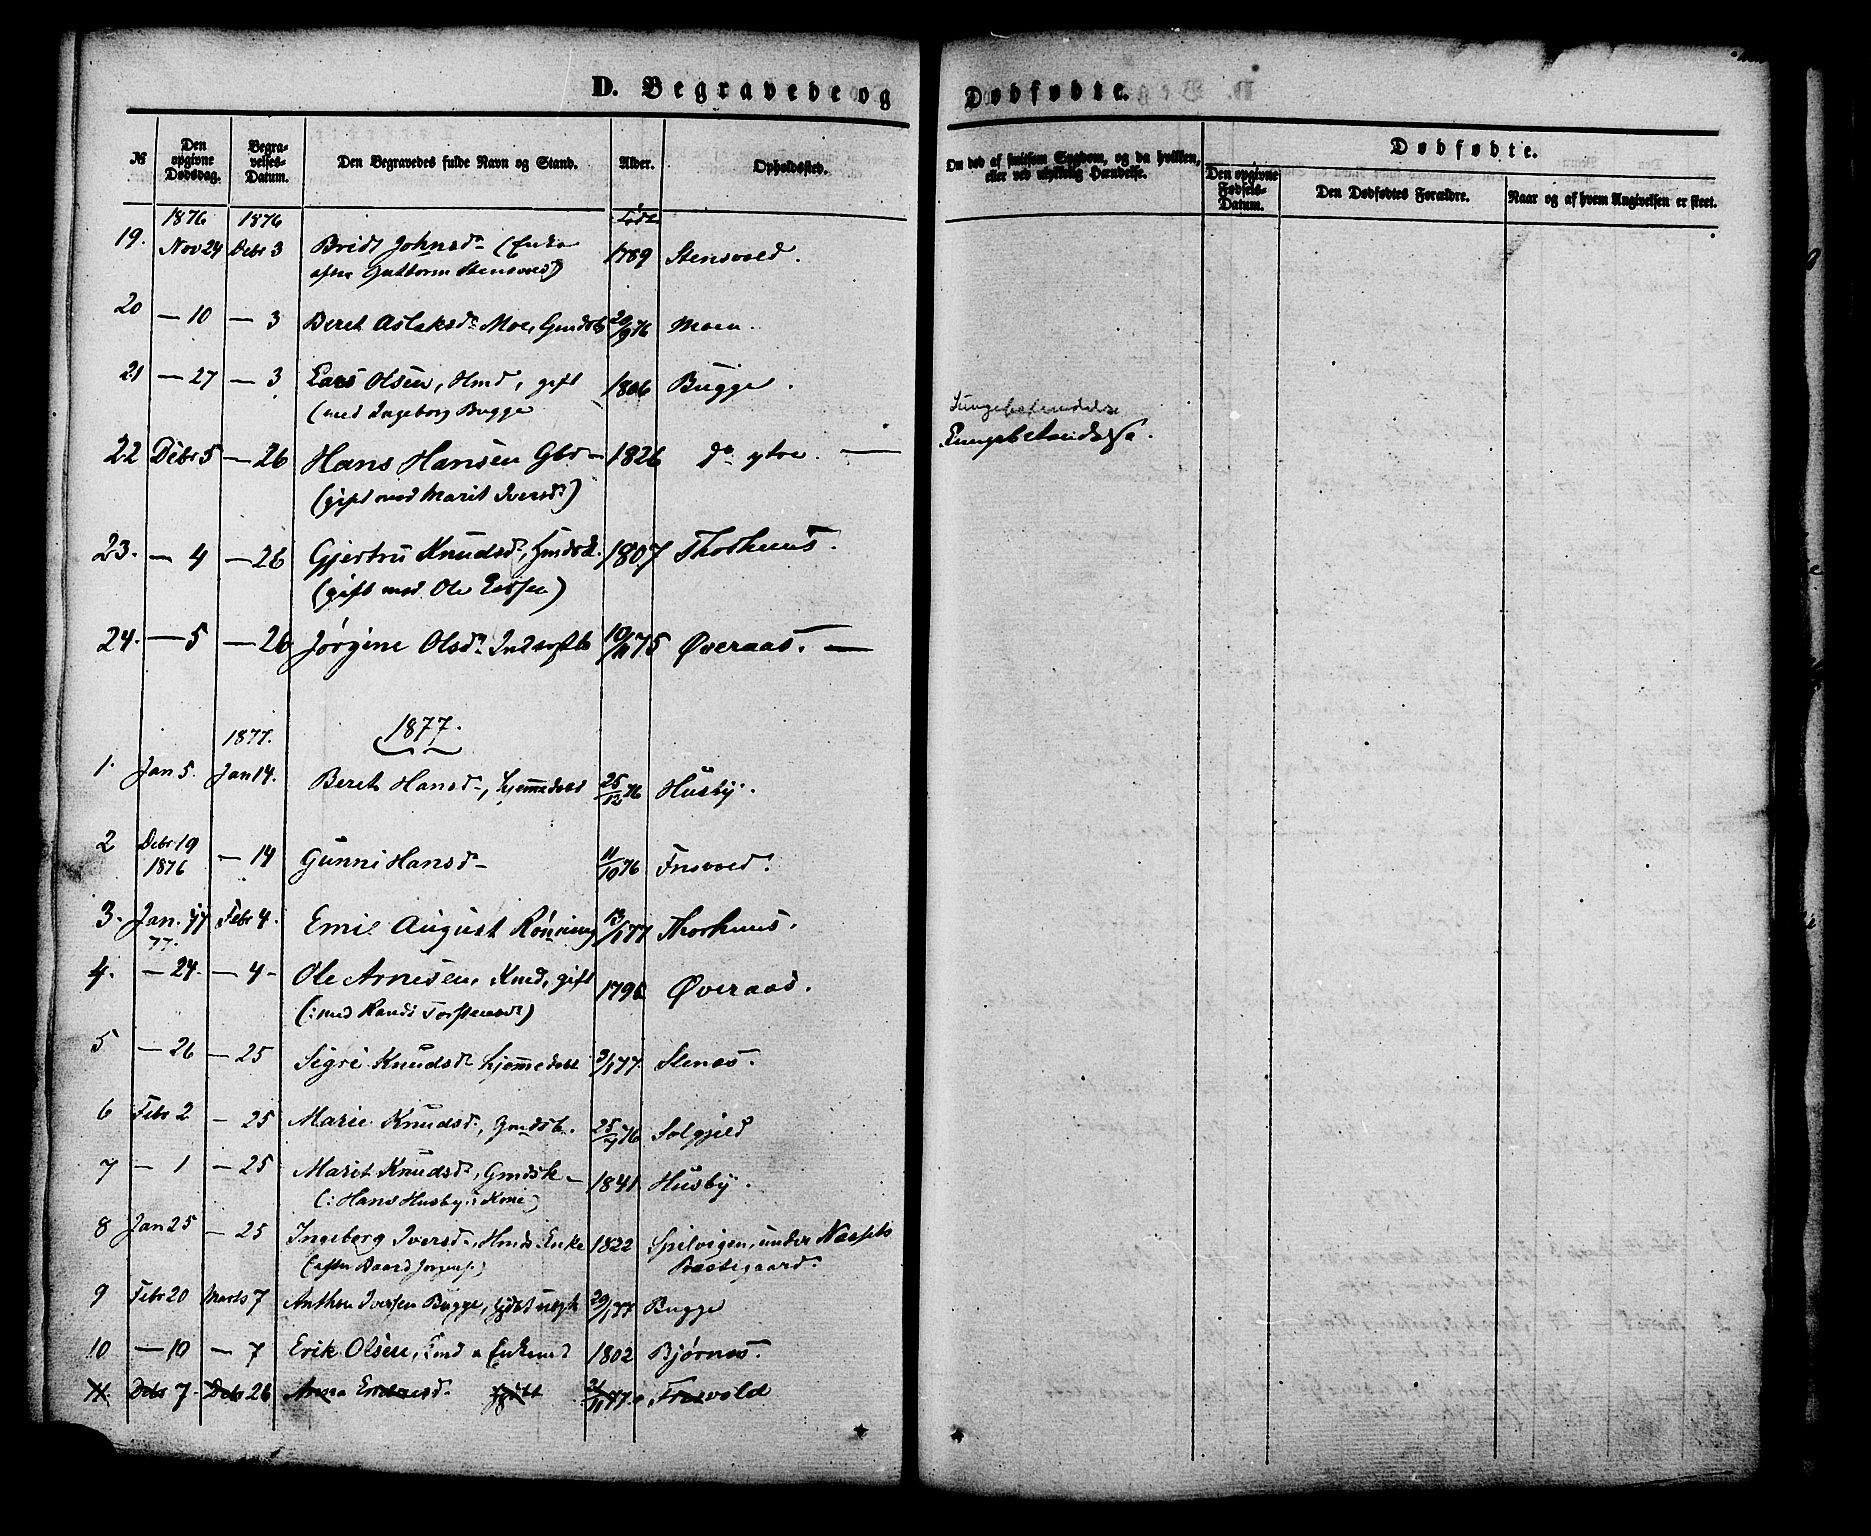 D. Begravede og Dødfødte.
№
Den opgivne Dødsdag.
Begravelses-Datum.
Den Begravedes fulde Navn og Stand.
Alder.
Opholdssted.
Om død af smitsom Sygdom, og da hvilken, eller ved ulykkelig Hændelse.
Dødfødte.
Den opgivne Fødsels-Datum.
Den Dødfødtes Forældre.
Naar og af hvem Angivelsen er skeet.
1876 1876 Født
19. Nov 24 Debr 3 Brit Johnsd. (Enke 1789 Stensvold.
efter Guttorm Stensvold)
20 — 10 — 3 Beret Aslaksd. Moe, Gmdsb 20/9 76 Moen.
21 — 27 — 3 Lars Olsen, Hmd, gift 1806 Bugge.
(med Ingeborg Bugge
Lungebetændelse
22 Debr 5 — 26 Hans Hansen Gbr — 1826 do ytre. — Lungebetændelse.
(gift med Marit Iversd.)
23. — 4 — 26 Gjertru Knudsd, 1807 Thorhuus.
(gift med Ole
24. — 5 — 26 Jørgine Olsd. 10/11 75 Øveraas. —
1877. 1877.
1. Jan 5. Jan 14. Beret Hansd —, hjemmedøbt 25/12 76 Husby.
2 Debr 19 — 14 Gunni Hansd — 11/10 76
1876
3. Jan. 17 Febr 4. Emil August Rønning 13/1 77 Thorhuus.
77.
4. — 24. — 4 — Ole Arnesen, Kmd, gift Øveraas.
(: med Randi Torstensd.)
5 — 26 — 25 Sigri Knudsd. hjemmedøbt 3/1 77. Stenes.
6 Febr 2 — 25 Marie Knudsd., Gmdsb. Solgjeld
7 — 1 — 25 Marit Knudsd., Gmdsk — 1841. Husby.
(: Hans Husbys Kone)
8 Jan 25 — 25 Ingeborg Iversd., Hmds. Enke 1822 Spilvigen, under
(efter Baard Præstegaard.
9 Febr 20 Marts 7 Anthon Iversen Bugge, 20/1 77 Bugge
10 — 10 — 7 Erik Olsen, 1802 Bjørnes.
11 Debr 7. Debr 26 Anna